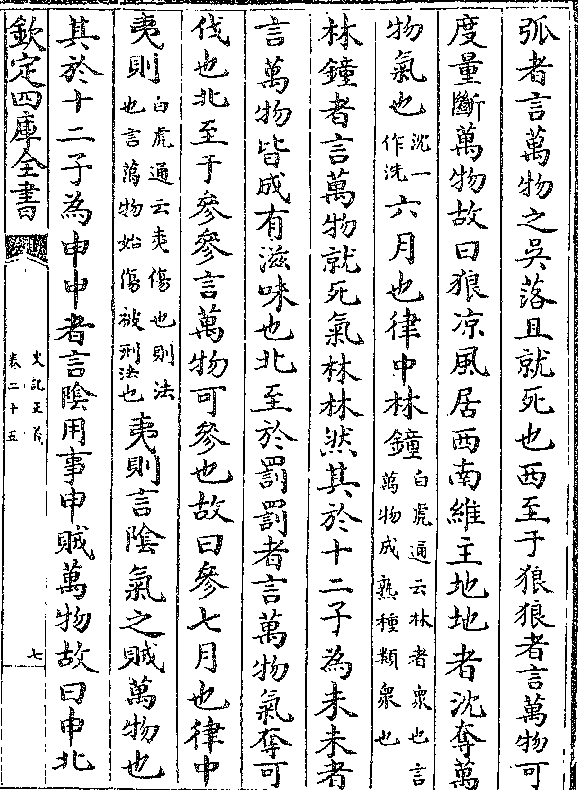 弧者言萬物之吳落且就死也西至于狼狼者言萬物可
度量斷萬物故曰狼凉風居西南維主地地者沈奪萬
物氣也沈一作洗六月也律中林鐘白虎通云林者衆也言萬物成熟種類衆也
林鐘者言萬物就死氣林林然其於十二子為未未者
言萬物皆成有滋味也北至於罰罰者言萬物氣奪可
伐也北至于參參言萬物可參也故曰參七月也律中
夷則白虎通云夷傷也則法也言萬物始傷被刑法也夷則言陰氣之賊萬物也
其於十二子為申申者言陰用事申賊萬物故曰申北
欽定四庫全書 史記正義卷二十五 七